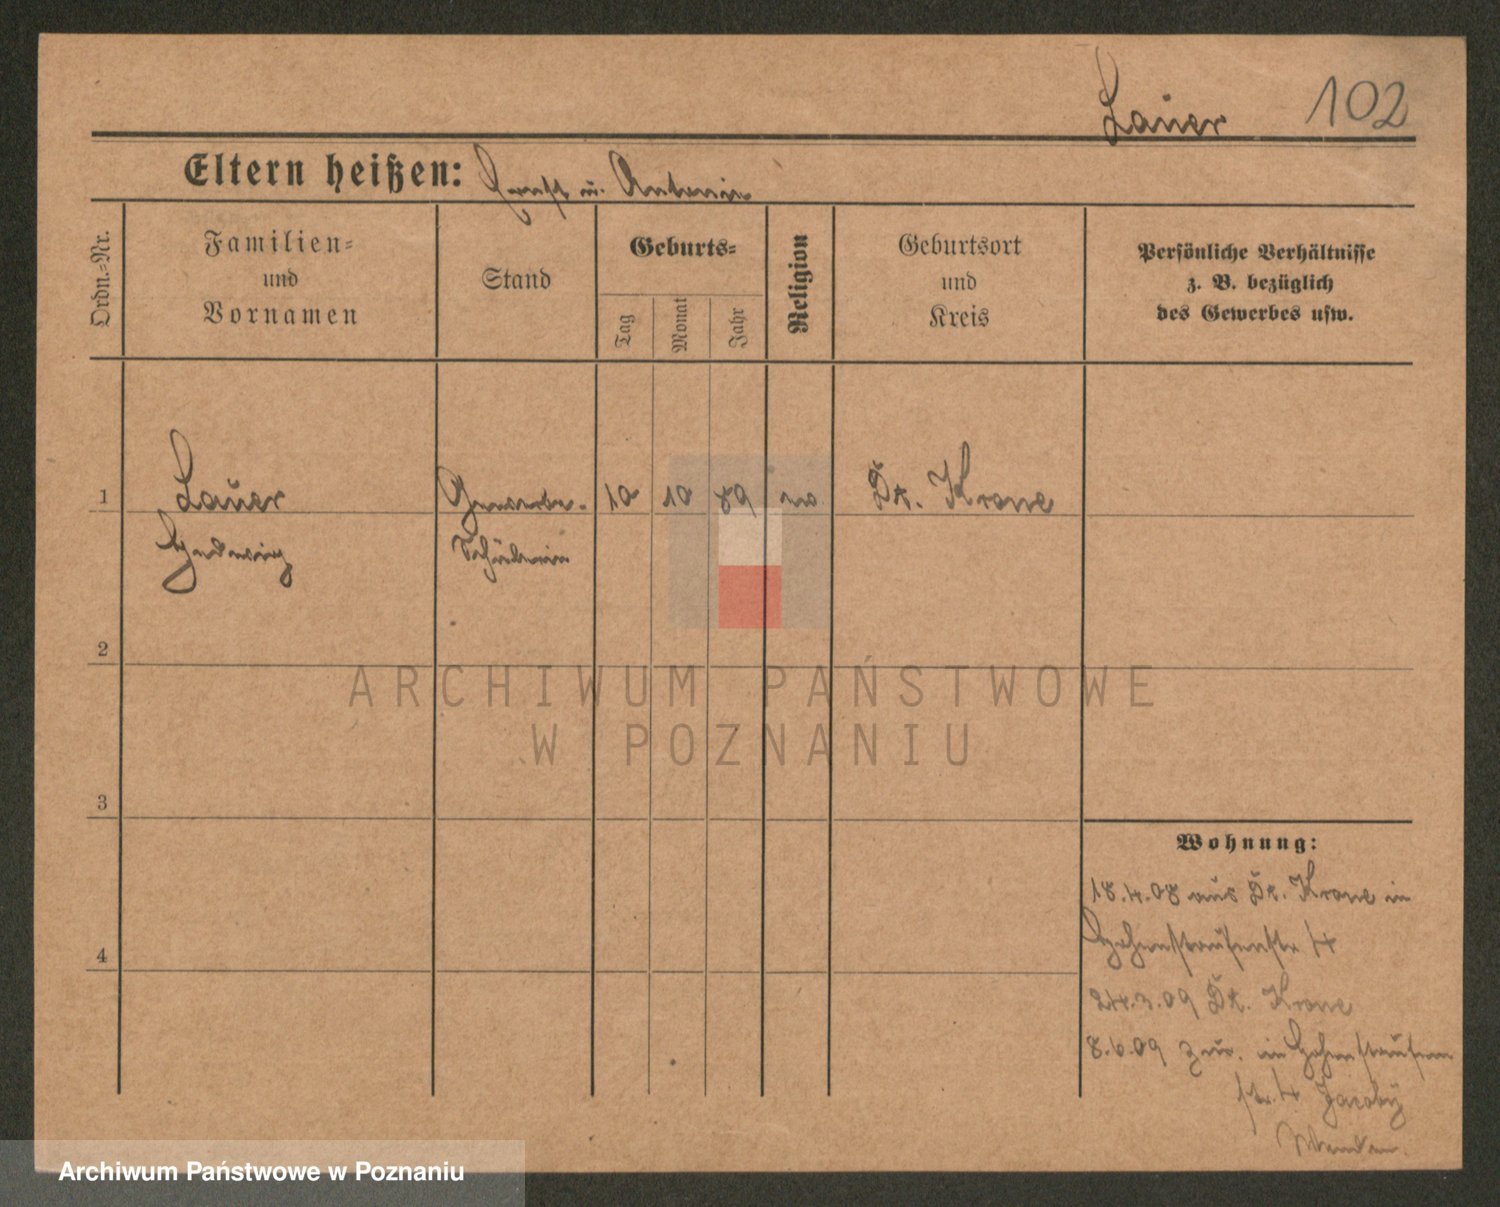 Lauer 102
Eltern heißen: Ernst u. Antonie
Ordn.=Nr.
Familien=
und
Vornamen
Stand
Geburts=
Tag
Monat
Jahr
Religion
Geburtsort
und
Kreis
Persönliche Verhältnisse
z. B. bezüglich
des Gewerbes usw.
1 Lauer Gewerbe- 10 10 89 Dt. Krone
Hedwig Schülerin
2
ARCHIWUM PAŃSTWOWE
W POZNANIU
3
Wohnung:
18.4.08 aus Dt. Krone in
Hohenstaufenstr. 4
4
24.3.09 Dt. Krone
8.6.09 zur. in Hohenstaufen
str. 4 Jacoby
Wenden.
Archiwum Państwowe w Poznaniu